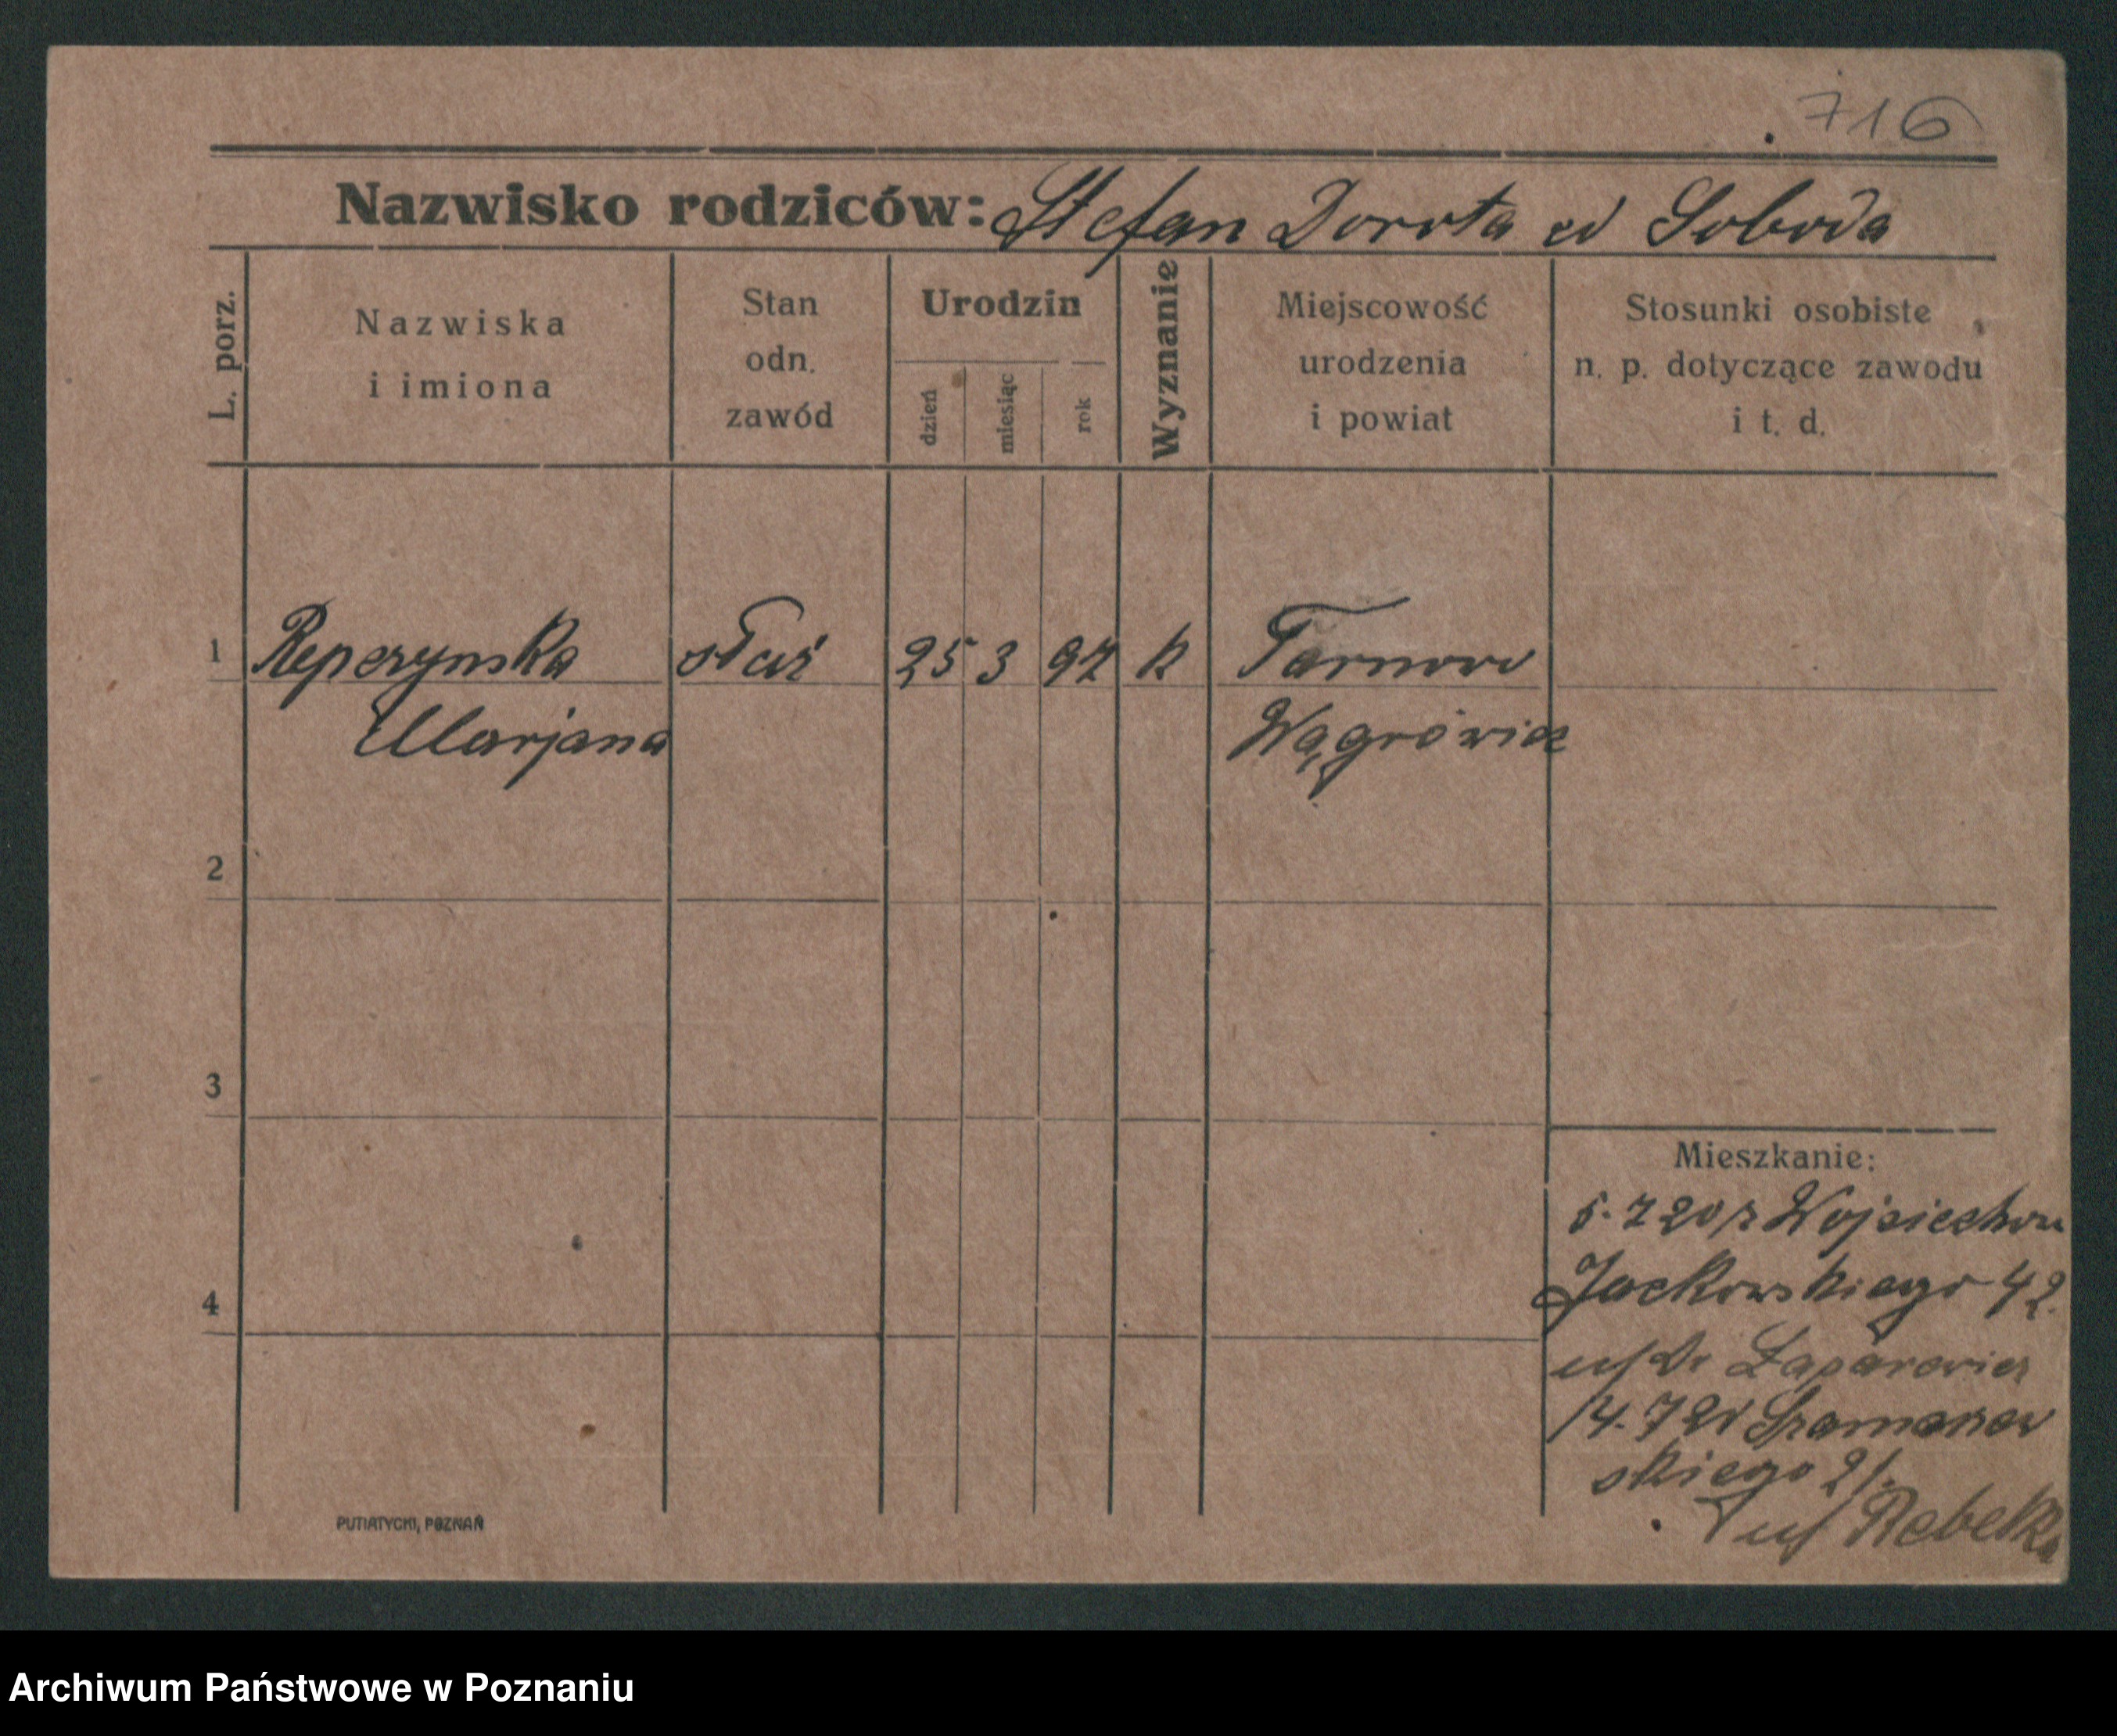 716
Nazwisko rodziców: Stefan Dorota ed Soboda
L. porz.
Nazwiska
i imiona
Stan
odn.
zawód
Urodzin
dzień
miesiąc
rok
Wyznanie
Miejscowość
urodzenia
i powiat
Stosunki osobiste
n. p. dotyczące zawodu
i t. d.
1 Repczynska służ 25 3 97 k Tarnowo
Marjana Wągrówiec
2
3
4
Mieszkanie:
5.7 20 Wojciechow
Jackowskiego 42.
14.7 Szamarzew
skiego 21.
Rebelka
PUTIATYCKI, POZNAŃ
Archiwum Państwowe w Poznaniu